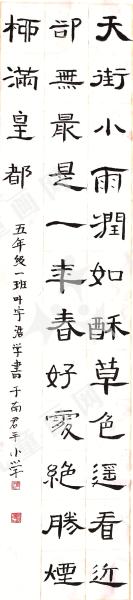 天街小雨潤如酥草色遥看近
卻無最是一年春好處絕勝煙
柳滿皇都
五年级一班叶宇
学書于
小学